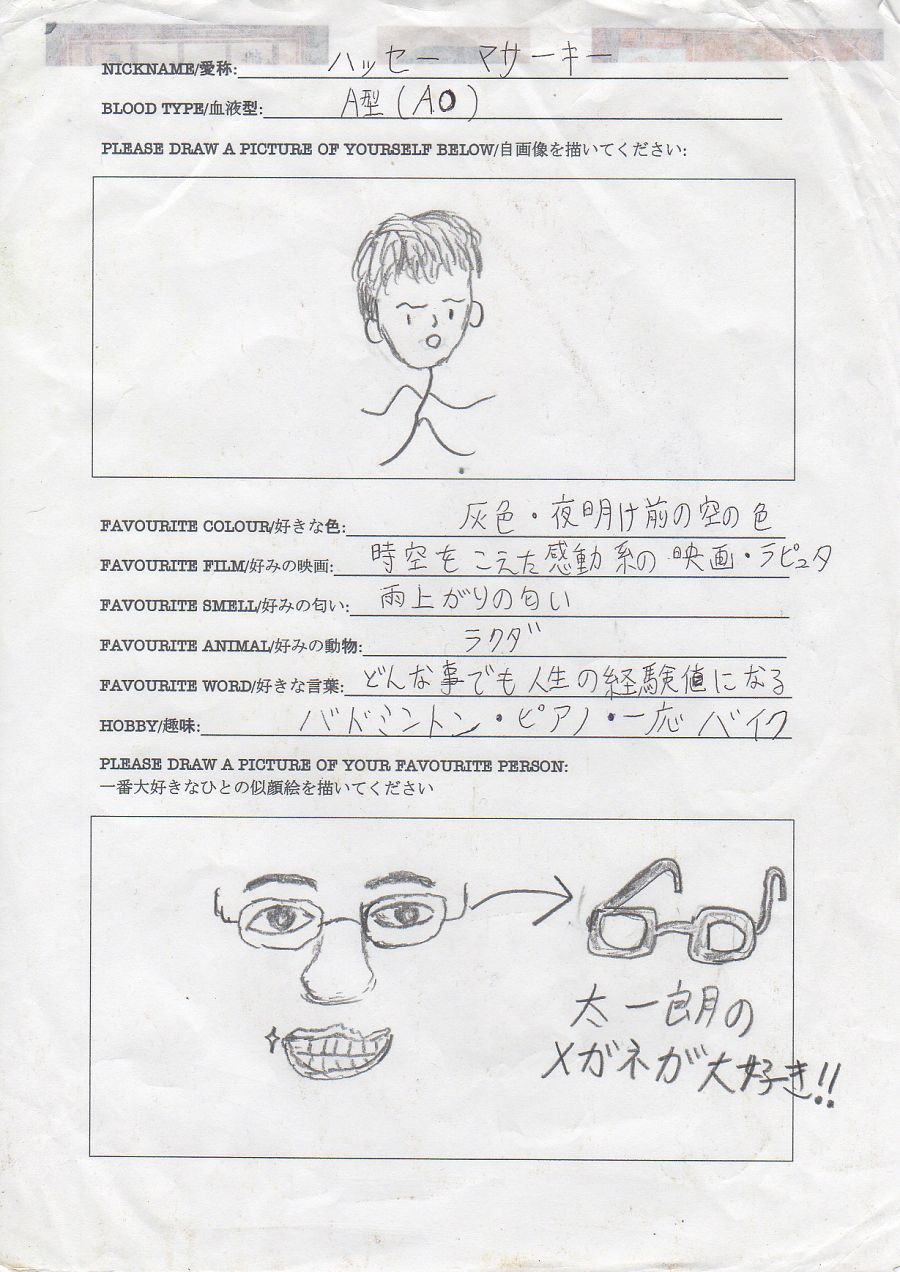 NICKNAME/愛称: ハッセー マサーキー
BLOOD TYPE/血液型: A型(AO)
PLEASE DRAW A PICTURE OF YOURSELF BELOW/自画像を描いてください:
FAVOURITE COLOUR/好きな色: 灰色・夜明け前の空の色
FAVOURITE FILM/好みの映画: 時空をこえた感動系の映画・ラピュタ
FAVOURITE SMELL/好みの匂い: 雨上がりの匂い
FAVOURITE ANIMAL/好みの動物: ラクダ
FAVOURITE WORD/好きな言葉: どんな事でも人生の経験値になる
HOBBY/趣味: バドミントン・ピアノ・一応バイク
PLEASE DRAW A PICTURE OF YOUR FAVOURITE PERSON:
一番大好きなひとの似顔絵を描いてください
太一朗の
メガネが大好き!!